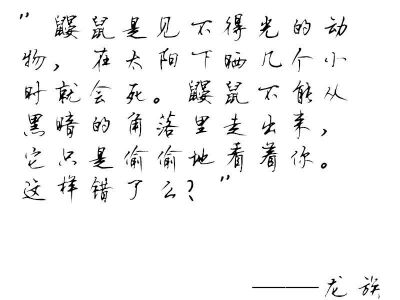 "鼹鼠是见不得光的动
物，在太阳下晒几个小
时就会死。鼹鼠不能从
黑暗的角落里走出来，
它只是偷偷地看着你。
这样错了么？"
——龙族